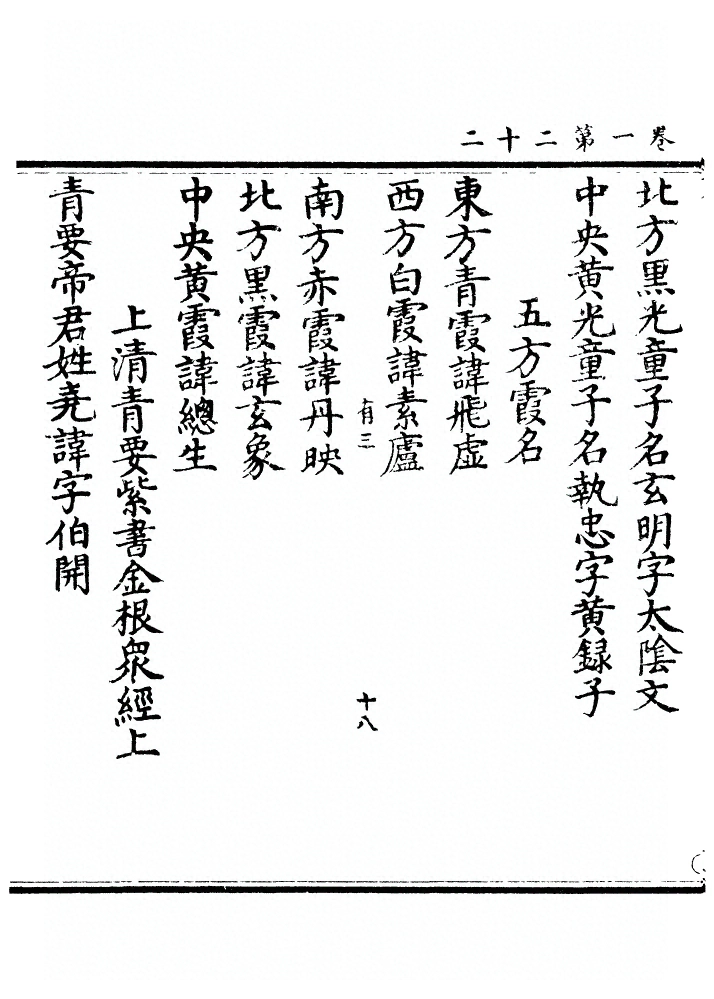 卷一第二十二
北方黑光童子名玄明字太陰文
中央黃光童子名執忠字黃録子
五方霞名
東方青霞諱飛虛
西方白霞諱素廬
有三
十八
南方赤霞諱丹映
北方黑霞諱玄象
中央黃霞諱總生
上清青要紫書金根衆經上
青要帝君姓堯諱字伯開